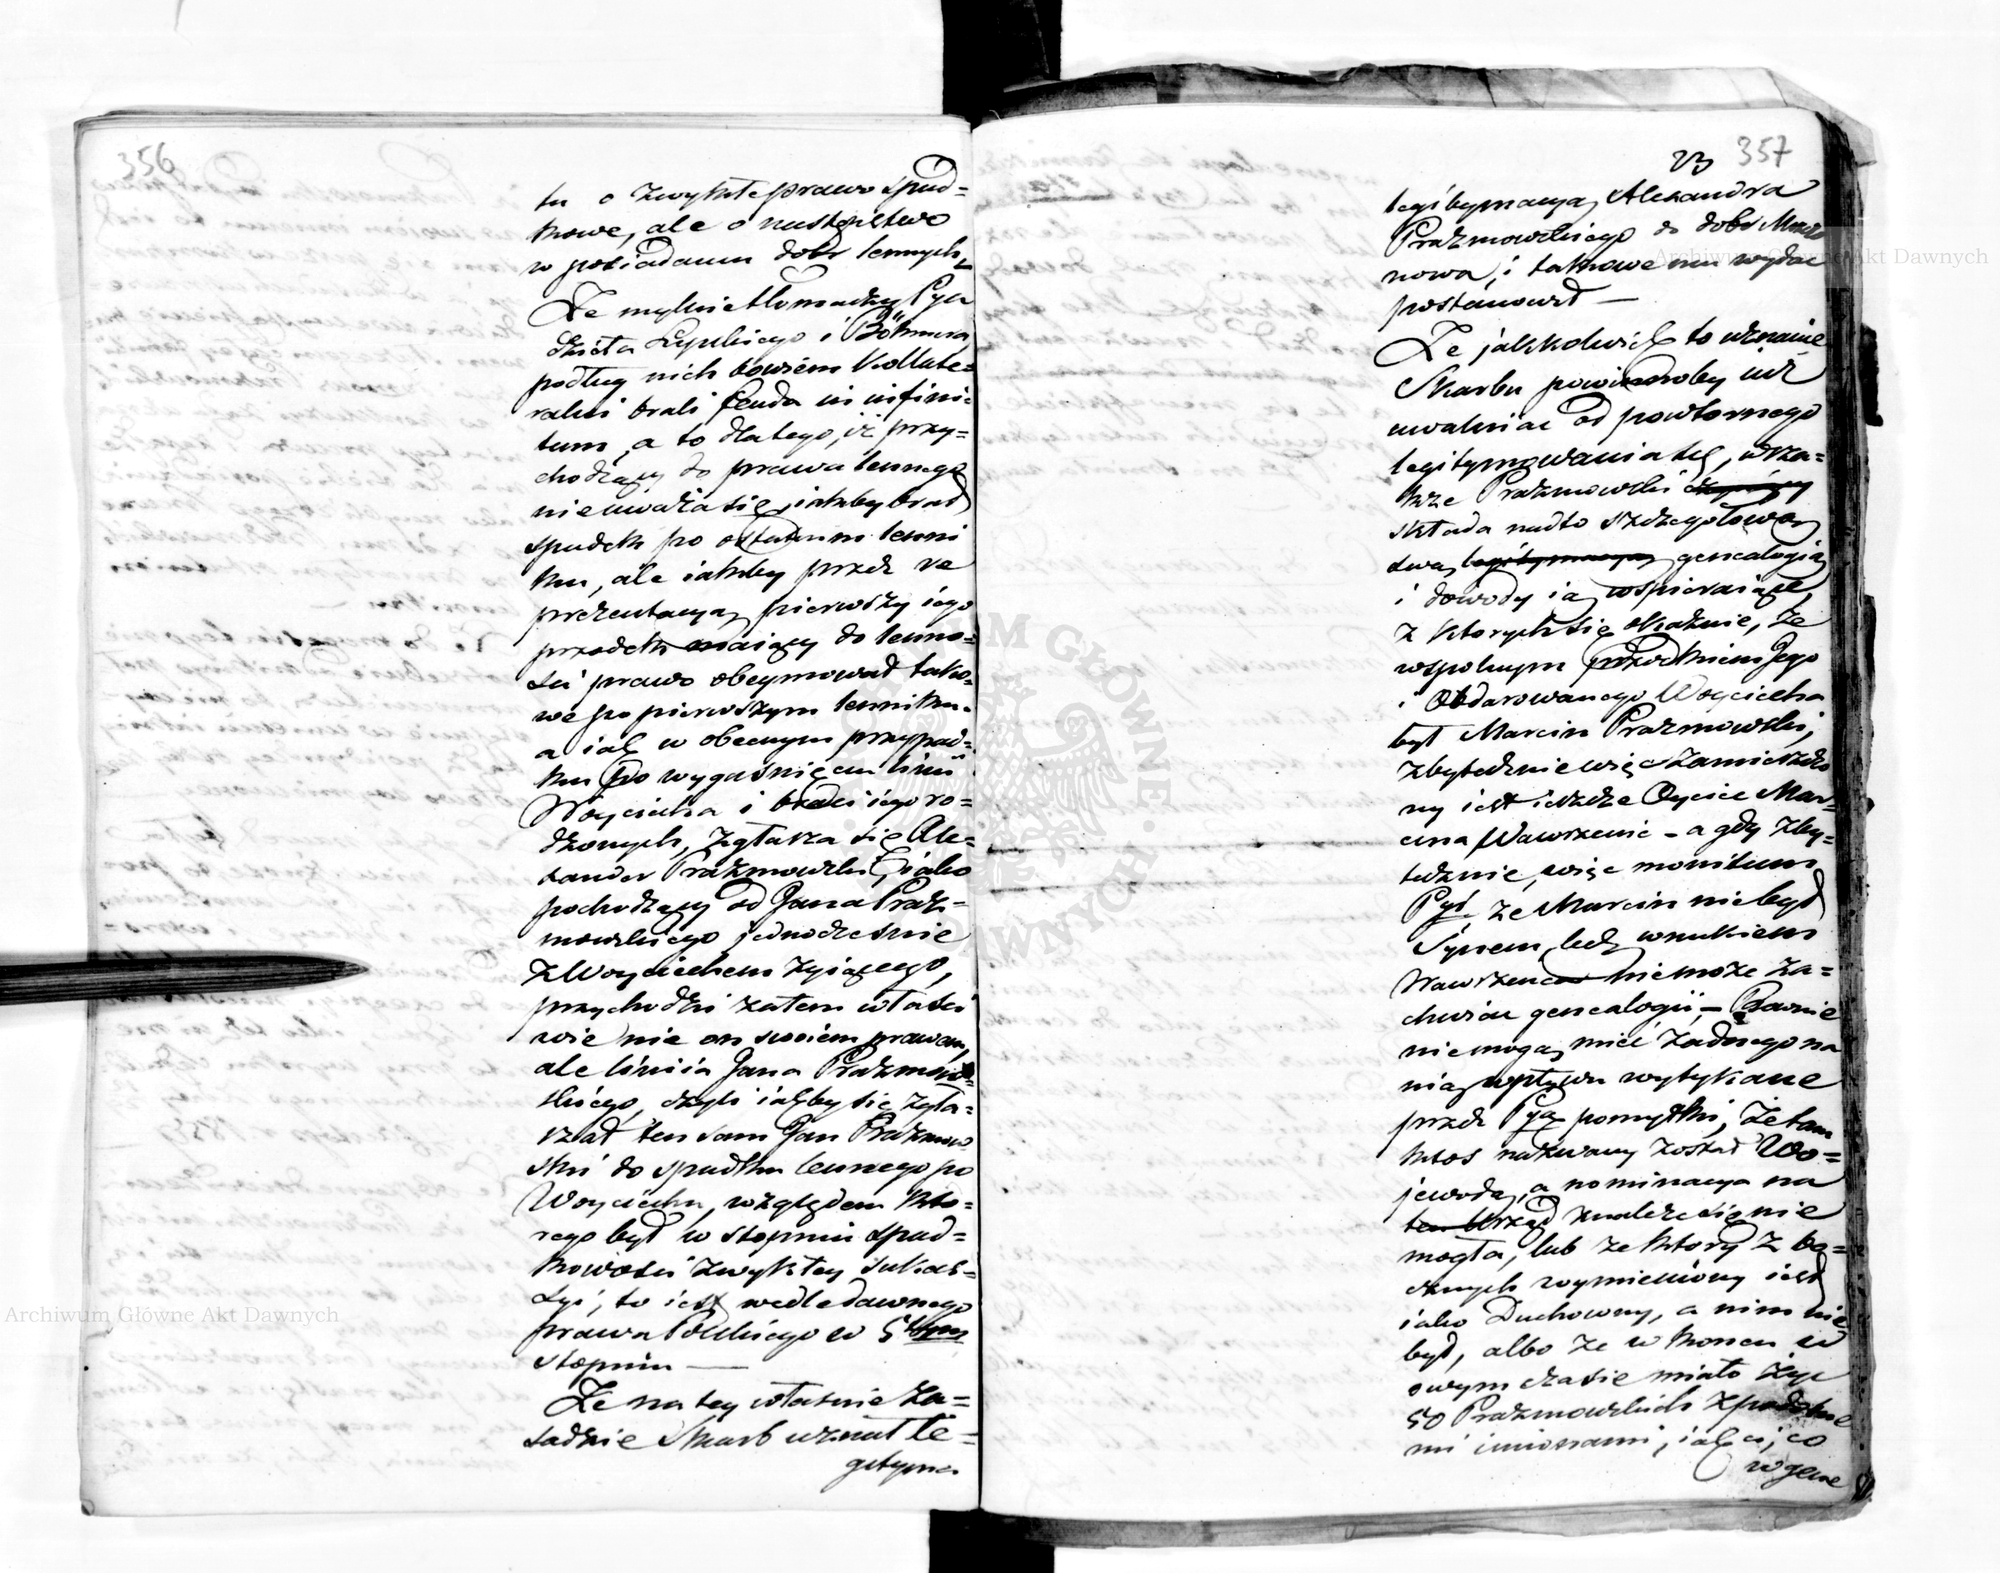 356
tu o zwykłe prawo spad=
kowe, ale o następstwo
w posiadaniu dóbr lennych,
Że mylnie tłomaczy Pyta
dzieła Lipskiego i Böhmera
podług nich bowiem Kollate=
ralni brali feuda in infini=
tum, a to dlatego, iż przy=
chodzący do prawa lennego
nieuważa się, iakby brał
spadek po ostatnim lenni
ku, ale iakby przez re
prezentacyą pierwszy iego
przodek maiący do lenno=
ści prawo obeymował tako=
we po pierwszym lenniku.
a iak w obecnym przypad=
ku po wygaśnięciu linii
Woyciecha i braci iego ro=
dzonych, zgłasza się Ale=
xander Prażmowski, iako
pochodzący od Jana Praż=
mowskiego jednocześnie
z Woyciechem żyiącego,
przychodzi zatem właści
wie nie on swoiem prawem,
ale linia Jana Prażmow=
skiego, czyli iakby się zgła=
szał ten sam Jan Prażmow
ski do spadku lennego po
Woyciechu, względem któ=
rego był w stopniu spad=
kowości zwykłey sukces=
syi, to iest wedle dawnego
prawa Polskiego w 5tym
stopniu —
Że na tey właśnie za=
sadzie Skarb uznał le=
gityma
23 357
legitymacyą Alexandra
Prażmowskiego do dóbr
nowa, i takowe mu wydać
postanowił —
Że jakkolwiek to uznanie
Skarbu powinnoby iuż
uwalniać od powtórnego
legitymowania się, wsza=
kże Prażmowski
składa nadto szczegółową
swą legitymacyą genealogią
i dowody ią wspieraiące,
z których się okazuie, że
wspólnym przodkiem Jego
i Obdarowanego Woyciecha
był Marcin Prażmowski,
zbytecznie więc zamieszczo
ny iest ieszcze Oyciec Mar=
cina Wawrzeniec – a gdy zby=
tecznie, więc monitum
Pyt. że Marcin niebył
Synem, lecz wnukiem
Wawrzenca niemoże za=
chwiać genealogii, – Równie
niemogą mieć żadnego na
nią wpływu wytykane
przez Pyą pomyłki, że tam
ktoś nazwany został Wo=
jewodą, a nominacya na
ten Urząd znaleźć się nie
mogła, lub że który z bo=
cznych wymieniony iest
iako Duchowny, a nim nie
był, albo że w koncu w
owym czasie miało żyć
50 Prażmowskich z podobne
mi imionami, iak ci, co
w gene
Archiwum Główne Akt Dawnych
Archiwum Główne Akt Dawnych
ARCHIWUM GŁÓWNE AKT DAWNYCH